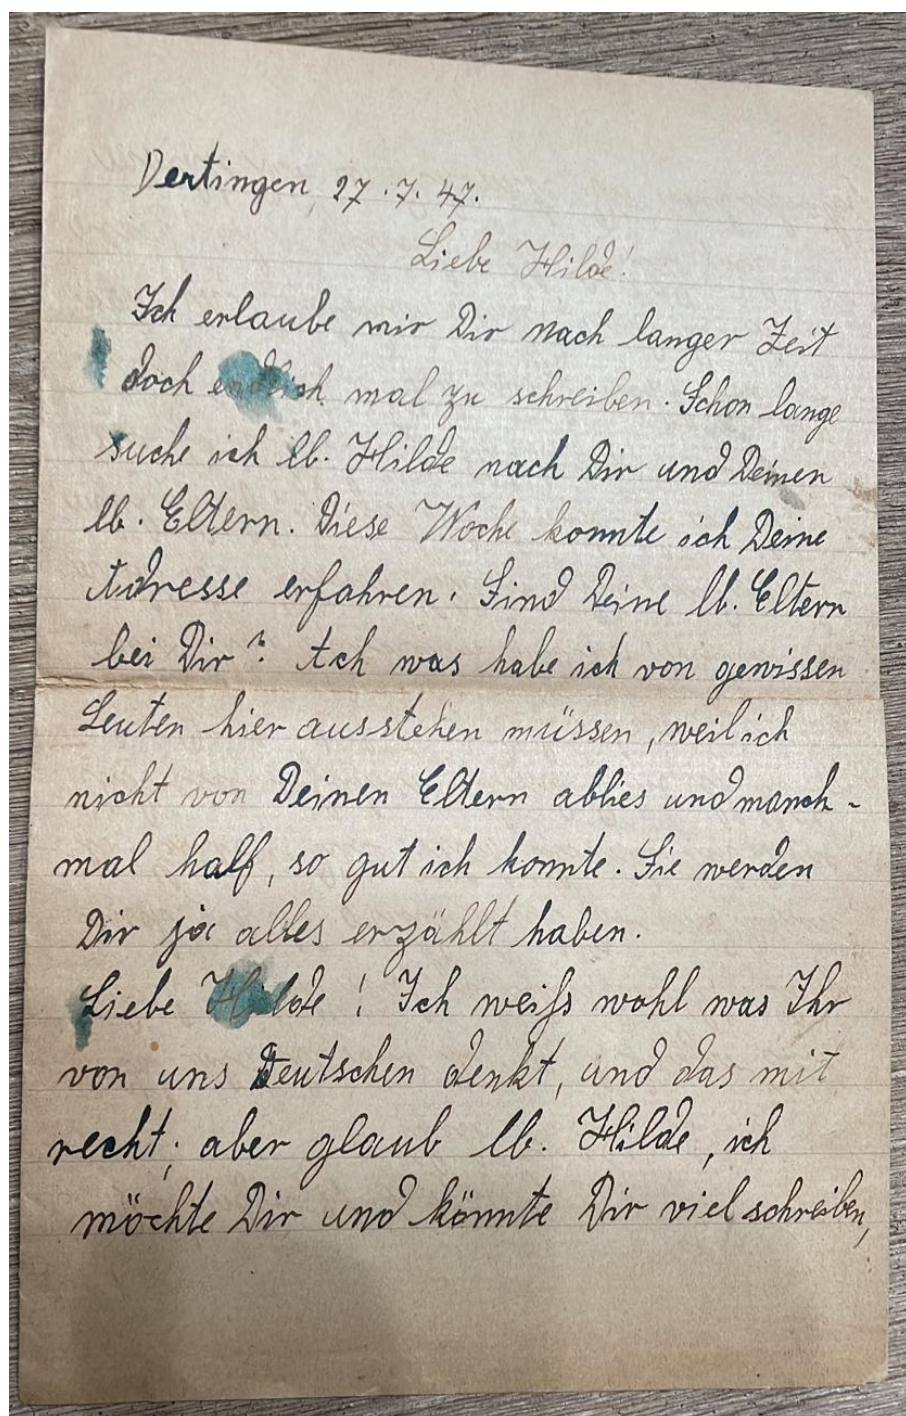 Dertingen 27.7.47.
Liebe Hilde!
Ich erlaube mir Dir nach langer Zeit
doch endlich mal zu schreiben. Schon lange
suche ich lb. Hilde nach Dir und Deinen
lb. Eltern. Diese Woche konnte ich Deine
Adresse erfahren. Sind Deine lb. Eltern
bei Dir? Ach was habe ich von gewissen
Leuten hier ausstehen müssen, weil ich
nicht von Deinen Eltern ablies und manch-
mal half, so gut ich konnte. Sie werden
Dir ja alles erzählt haben.
Liebe Hilde! Ich weiß wohl was Ihr
von uns Deutschen denkt, und das mit
recht; aber glaub lb. Hilde, ich
möchte Dir und könnte Dir viel schreiben,